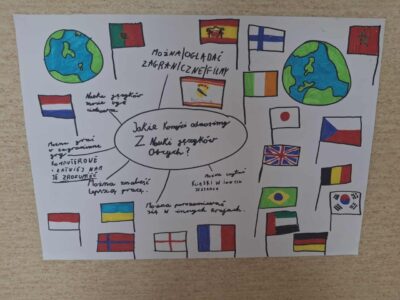 MOŻNA OGLĄDAĆ
ZAGRANICZNE FILMY
Nauka języków
może być
Jakie korzyści odnosimy
Z Nauki języków
Obcych?
Można grać
w zagraniczne
gry
KOMPUTEROWE
ŁATWIEJ NAM
JE ZROZUMIEĆ
Można znaleźć
lepszą pracę.
Można czytać
KSIĄŻKI W INNYCH
JĘZYKACH
Można porozumiewać
się w innych krajach.